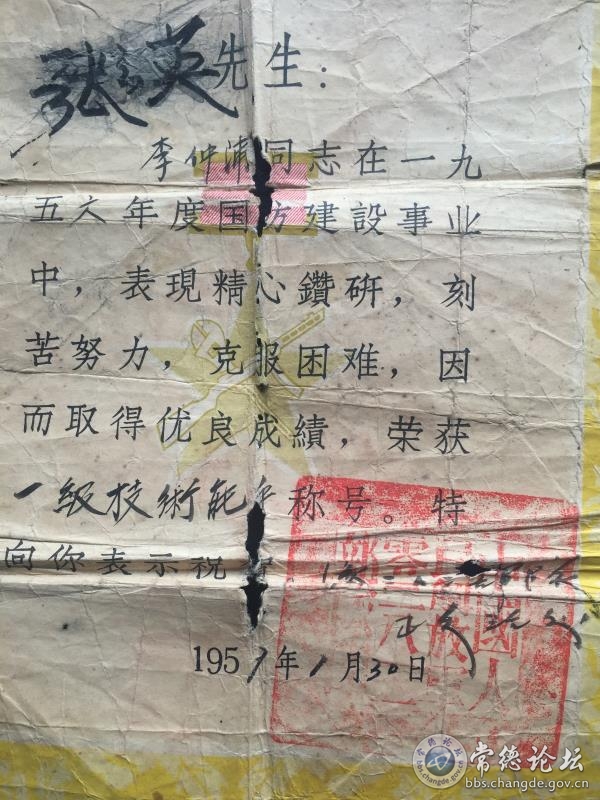 张家英先生：
李仲清同志在一九
五六年度国防建設事业
中，表現精心鑽研，刻
苦努力，克服困难，因
而取得优良成績，荣获
一級技術能手称号。特
向你表示祝
1957年1月30日
常德论坛
bbs.changde.gov.cn